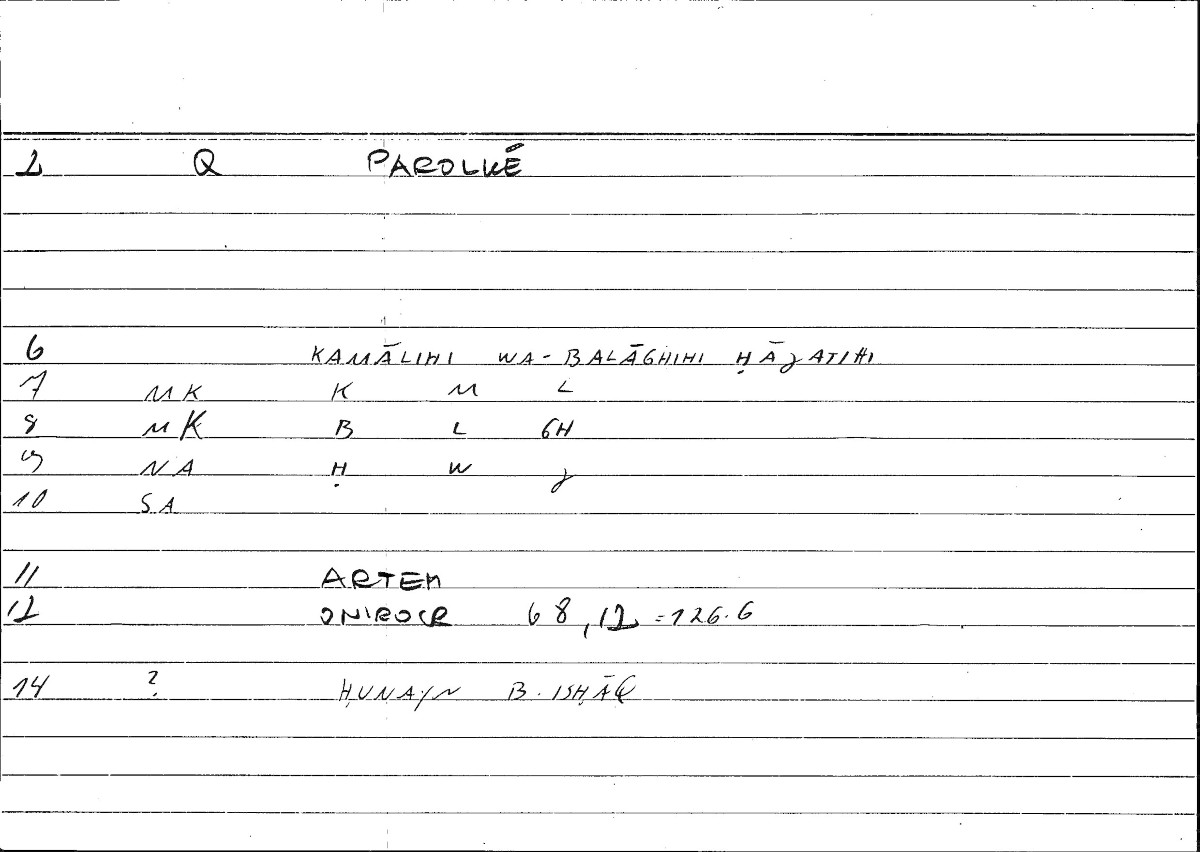 2 Q PAROLKÉ
6 KAMĀLIHI WA-BALĀGHIHI ḤĀJATIHI
7 MK K M L
8 MK B L GH
9 NA Ḥ W J
10 SA
11 ARTEM
12 ONIROCR 68,12 =126.6
14 ? ḤUNAYN B. ISḤĀQ